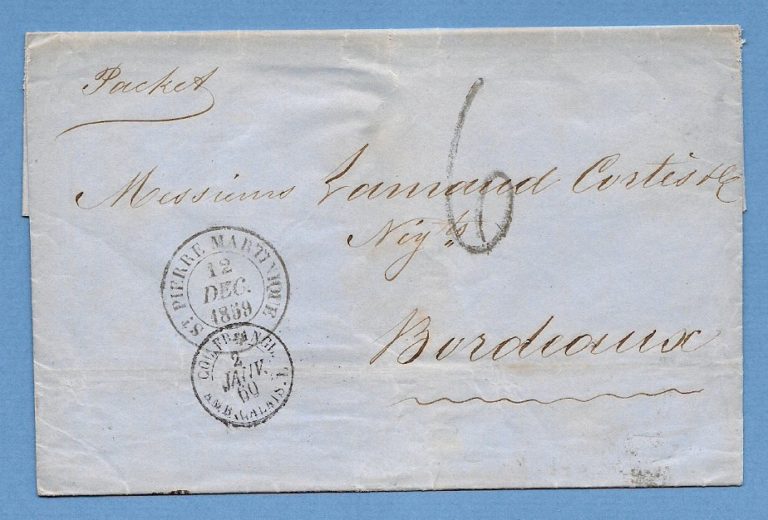 Packet
6
Messieurs Lamaud Cortis & C
Nigts
Bordeaux
ST PIERRE MARTINIQUE
12
DEC.
1859
COL. FR. ANGL.
2
JANV.
60
AMB. CALAIS. T